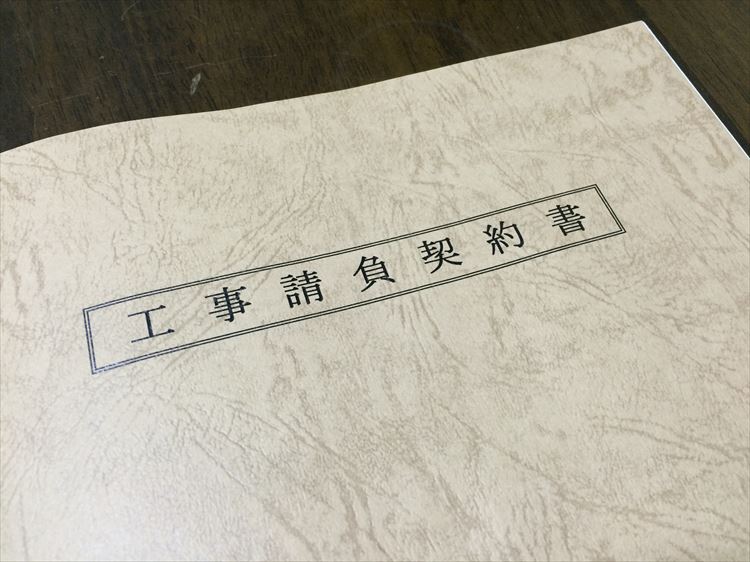 工事請負契約書